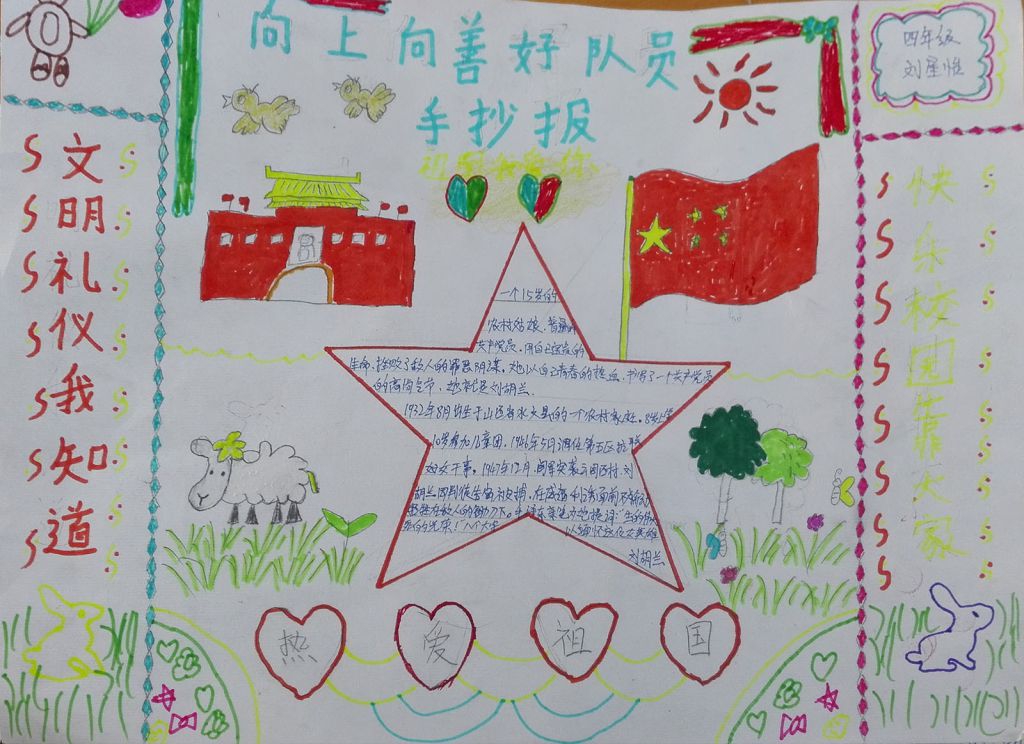 向上向善好队员
手抄报
四年级
刘星惟
文明礼仪我知道
快乐校园靠大家
一个15岁的
农村姑娘,普通的
共产党员,用自己宝贵的
生命,拯救了敌人的罪恶阴谋,她以自己青春的热血,书写了一个共产党员
的高尚气节,她就是刘胡兰。
1932年8月出生于山西文水县的一个农村家庭。8岁上学
10岁参加儿童团,1946年5月调任第五区抗联
妇女干事。1947年1
月,刘
胡兰因叛徒告密被捕,在威逼利诱面前不
敌人的铡刀下。毛泽东亲笔为她提词"生的伟
的光荣!"八个大字
以缅怀这位女英雄
刘胡兰
热爱祖国